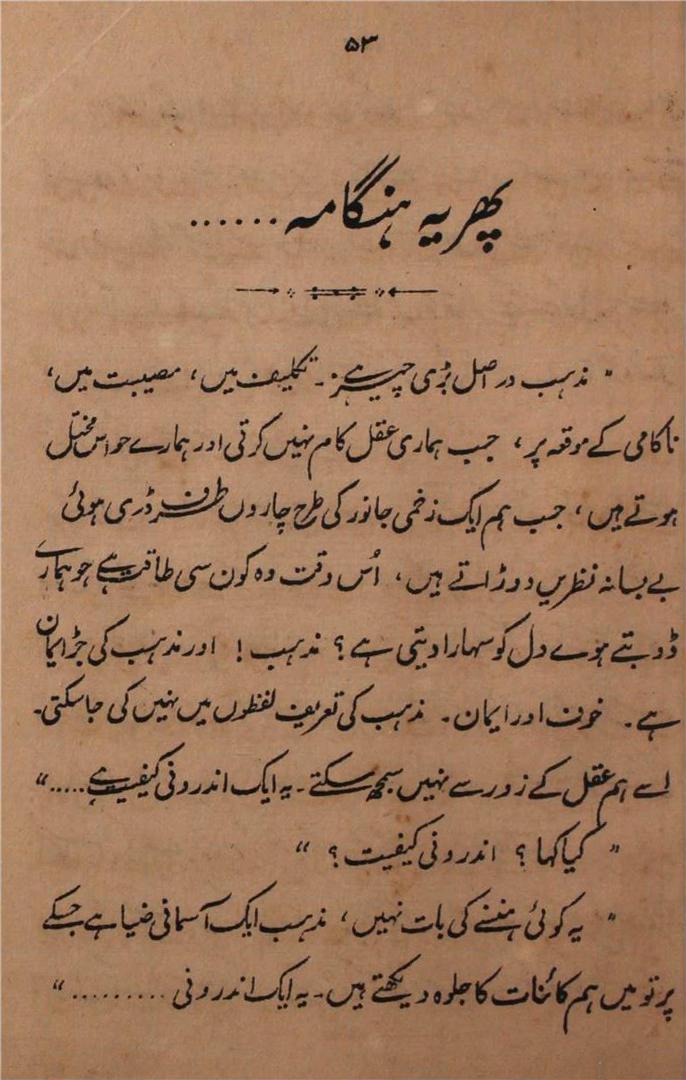 ۵۳
پھر یہ ہنگامہ ......
" مذہب دراصل بڑی چیز ہے۔ تکلیف میں، مصیبت میں،
ناکامی کے موقعہ پر، جب ہماری عقل کام نہیں کرتی اور ہمارے حواس مختل
ہوتے ہیں، جب ہم ایک زخمی جانور کی طرح چاروں طرف ڈری ہوئی
بے بسانہ نظریں دوڑاتے ہیں، اُس وقت وہ کون سی طاقت ہے جو ہمارے
ڈوبتے ہوے دل کو سہارا دیتی ہے؟ مذہب! اور مذہب کی جڑ ایمان
ہے۔ خوف اور ایمان۔ مذہب کی تعریف لفظوں میں نہیں کی جا سکتی۔
اسے ہم عقل کے زور سے نہیں سمجھ سکتے۔ یہ ایک اندرونی کیفیت ہے....."
" کیا کہا؟ اندرونی کیفیت؟ "
" یہ کوئی ہنسنے کی بات نہیں، مذہب ایک آسمانی ضیا ہے جسکے
پرتو میں ہم کائنات کا جلوہ دیکھتے ہیں۔ یہ ایک اندرونی ......... "